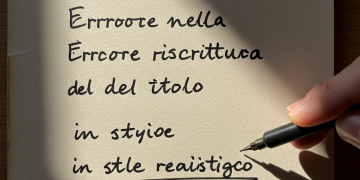 Errroore nella
Errcore riscrittura
del del itolo
in styioe
in stle reaistigco